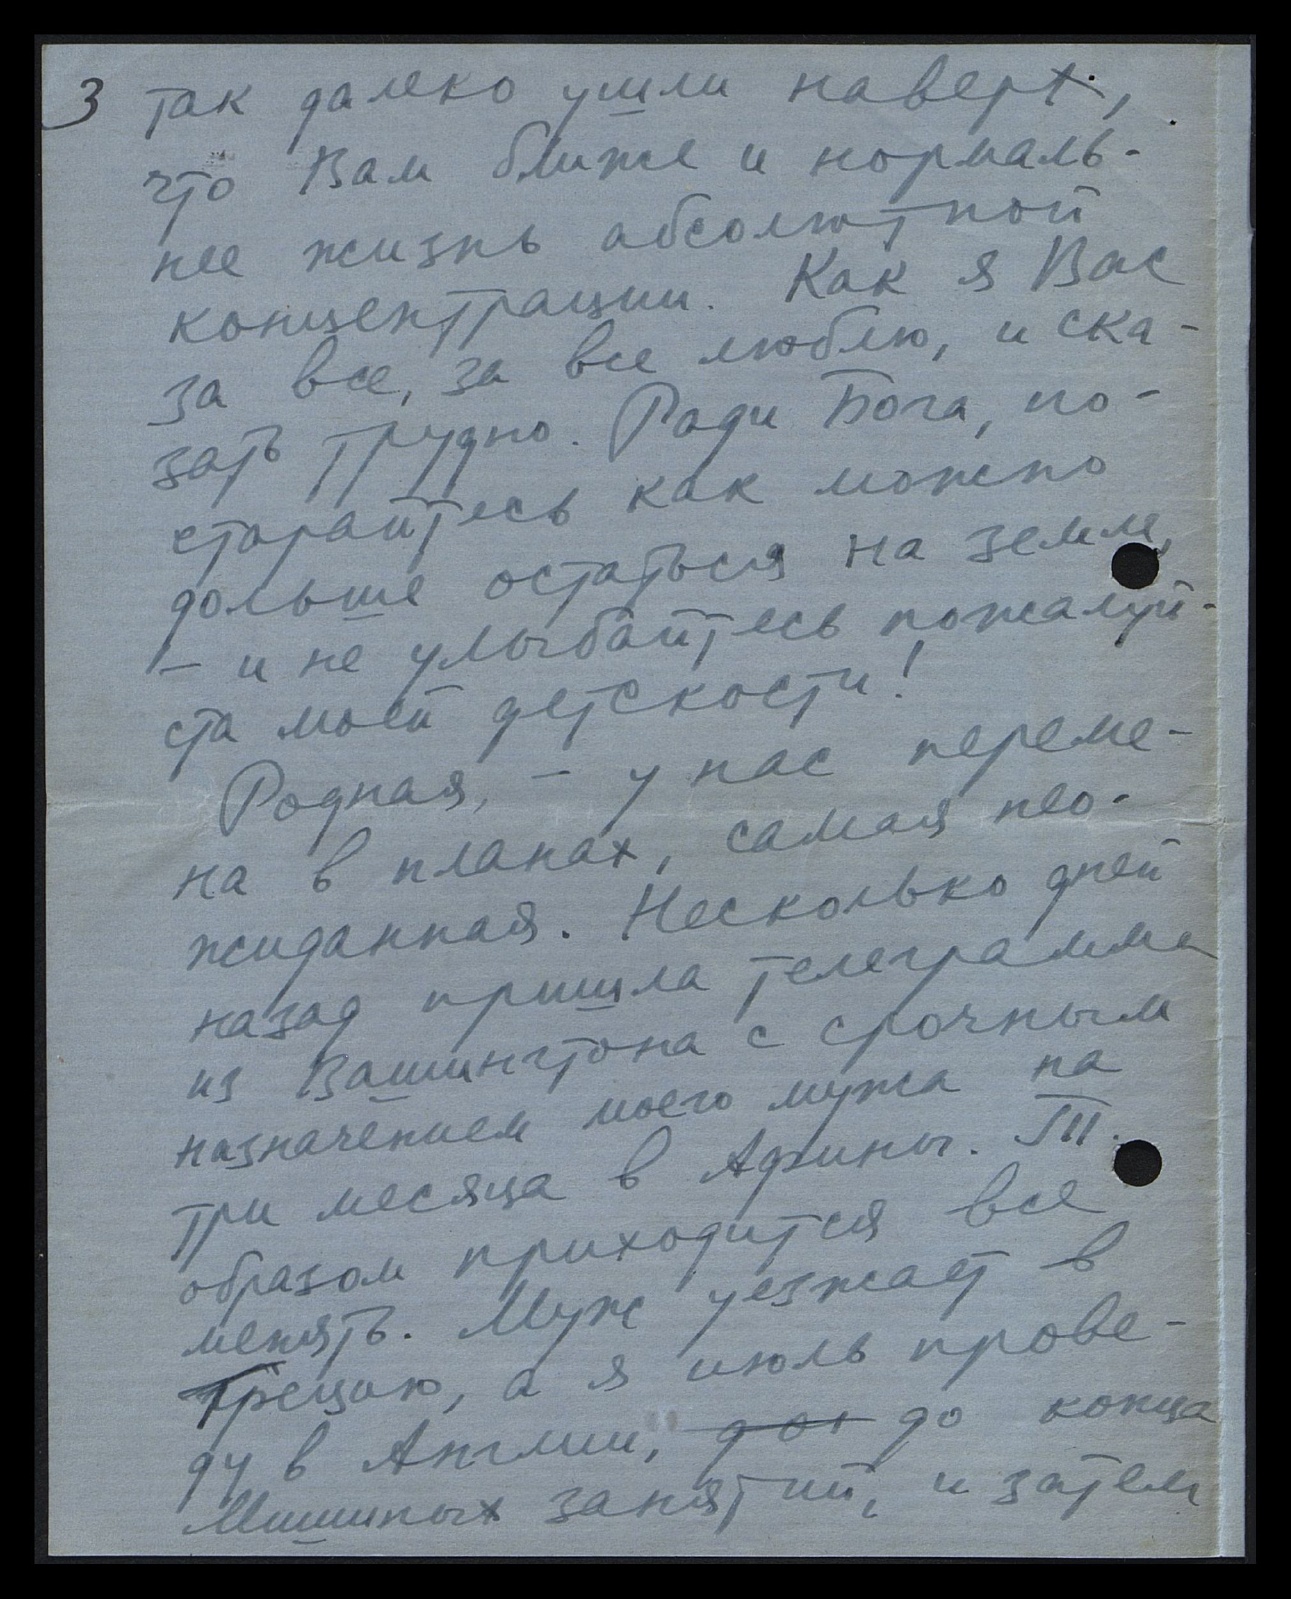 3 так далеко ушли наверх,
что Вам ближе и нормаль-
нее жизнь абсолютной
концентрации. Как я Вас
за все, за все люблю, и ска-
зать трудно. Ради Бога, по-
старайтесь как можно
дольше остаться на земле,
– и не улыбайтесь пожалуй-
ста моей детскости!
Родная, – у нас переме-
на в планах, самая нео-
жиданная. Несколько дней
назад пришла телеграмма
из Вашингтона с срочным
назначением моего мужа на
три месяца в Афины. Т.
образом приходится все
менять. Муж уезжает в
Грецию, а я июль прове-
ду в Англии, до конца
Мишиных занятий, и затем